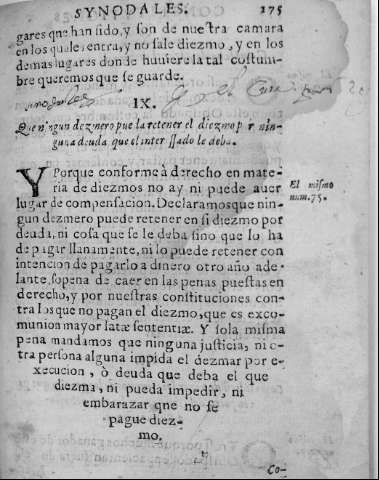 SYNODALES. 175
gares que han sido, y son de nuestra camara
en los quales entra, y no sale diezmo, y en los
demas lugares donde huviere la tal costum-
bre queremos que se guarde.
IX.
Que ningun dezmero pueda retener el diezmo por nin-
guna deuda que el interessado le deba.
Y Porque conforme à derecho en mate-
ria de diezmos no ay ni puede aver
lugar de compensacion. Declaramos que nin-
gun dezmero puede retener en si diezmo por
deuda, ni cosa que se le deba sino que lo ha
de pagar llanamente, ni lo puede retener con
intencion de pagarlo a dinero otro año ade-
lante, sopena de caer en las penas puestas en
derecho, y por nuestras constituciones con-
tra los que no pagan el diezmo, que es exco-
munion mayor latæ sententiæ. Y sola misma
pena mandamos que ninguna justicia, ni o-
tra persona alguna impida el dezmar por e-
xecucion, ò deuda que deba el que
diezma, ni pueda impedir, ni
embarazar que no se
pague diez-
mo.
El mismo
num. 75.
Co-